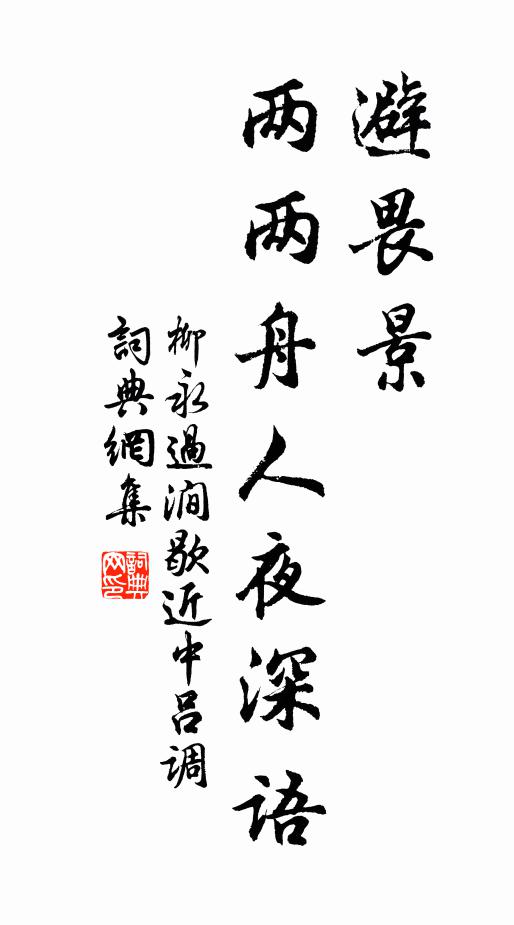 避畏景
两两舟人夜深语
柳永過澗歇近中呂调
詞典網集
詞典
网印